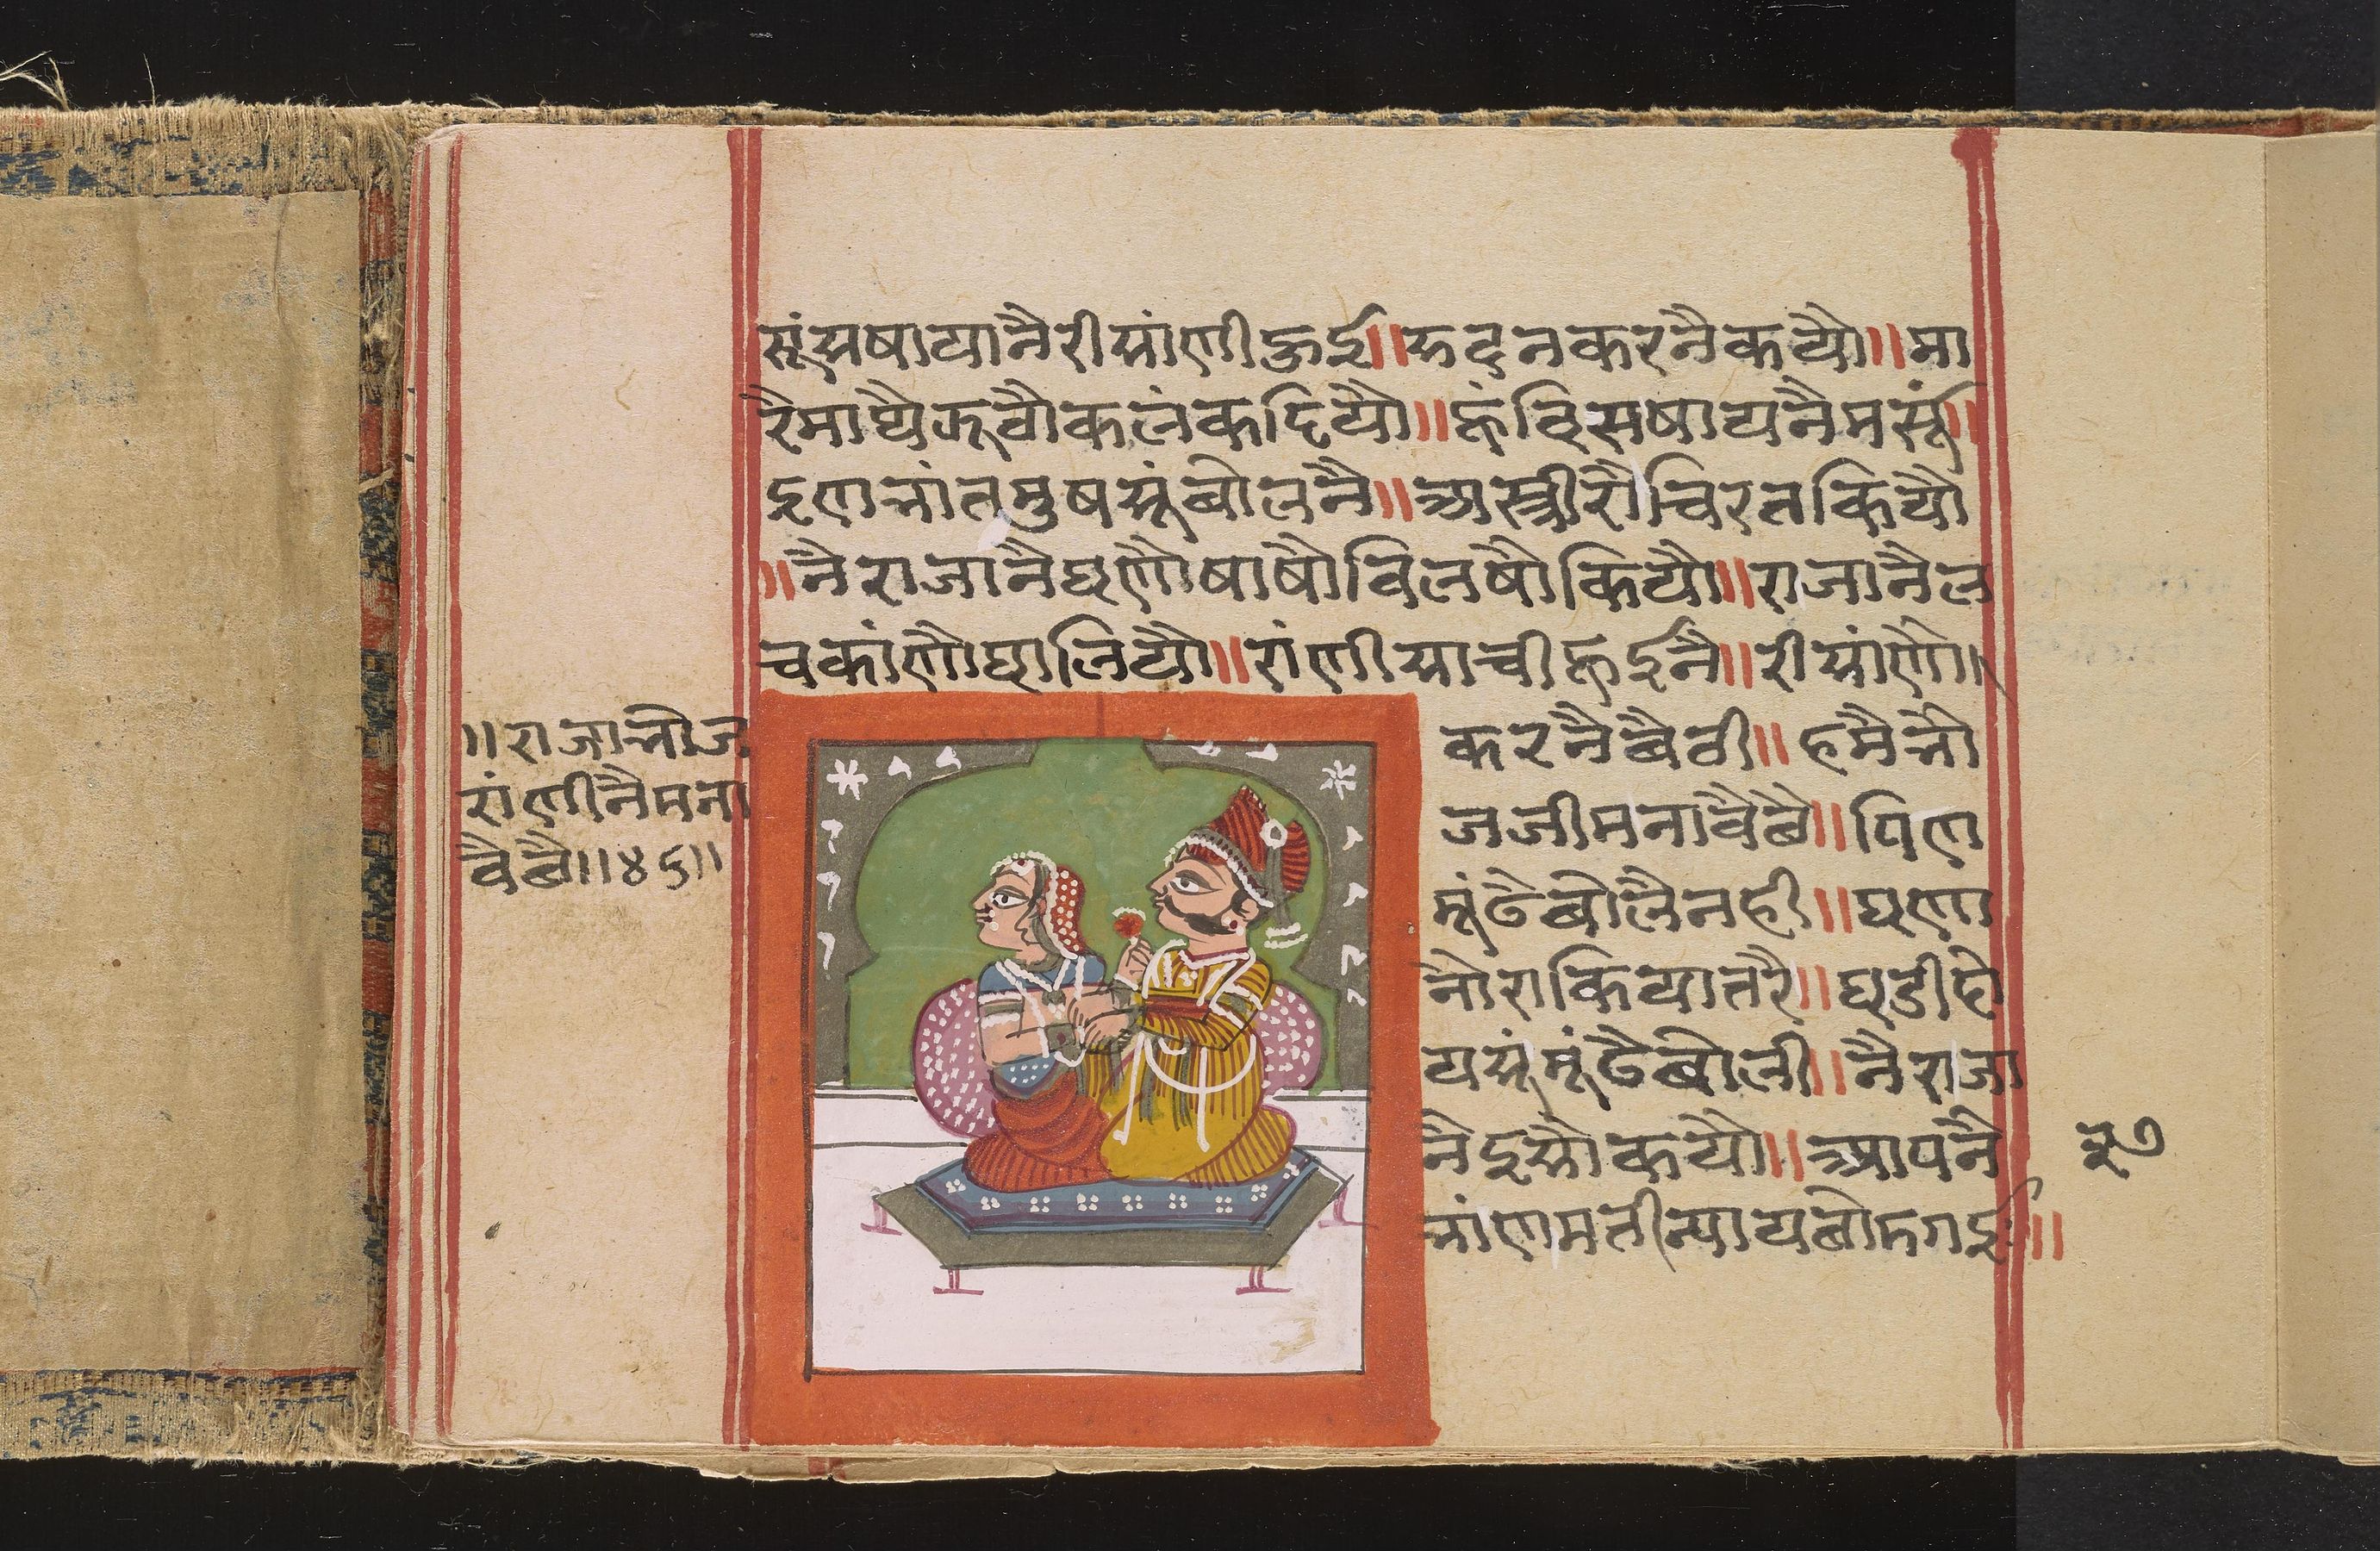 सूंसषायानैरीसांणीऊई॥रूदनकरनैकयौ॥मा
रैमाथैऊवौकलंकदियौ॥हूंविसषायनैमरसूं॥
इणभांतमुषसूंबोलनै॥अस्त्रीरौचिरतकियौ
॥नैराजानैघणौषाषौविलषौकियौ॥राजानैल
चकांणौघालियौ॥रांणीसाचीहूईनै॥रीसांणौ॥
करनैबैठी॥हमैभो
जजीमनावैबै॥पिण
मूंढैबोलैनही॥घणा
नौराकियातरै॥घडीदो
यसूंमूंढैबोली॥नैराजा
नैइसौकयौ॥आपनै
भांणमतीन्यायबोदगई॥
॥राजाभोज
रांणीनैमना
वैबै॥४५॥
३७